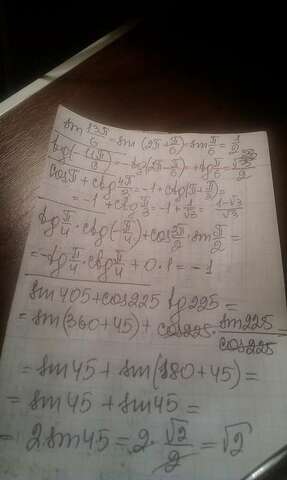 sin 13π/6 = sin (2π + π/6) = sin π/6 = 1/2
tg(-11π/6) = -tg(2π - π/6) = tg π/6 = √3/3
cos π + ctg 4π/3 = -1 + ctg(π + π/3) =
= -1 + ctg π/3 = -1 + 1/√3 = 1-√3/√3
tg π/4 · ctg(-π/4) + cos 3π/2 · sin π/2 =
= -tg π/4 · ctg π/4 + 0 · 1 = -1
sin 405 + cos 225 tg 225 =
= sin(360+45) + cos 225 · sin 225/cos 225
= sin 45 + sin(180+45) =
= sin 45 + sin 45 =
= 2 sin 45 = 2 · √2/2 = √2